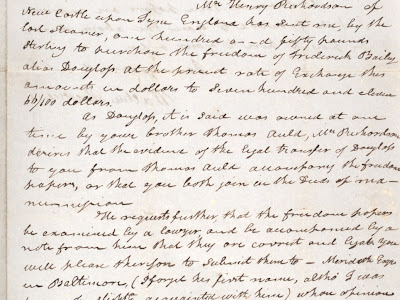 Mr Henry Richardson of
New Castle upon Tyne England has sent me by the
last Steamer, one hundred and fifty pounds
Sterling to purchase the freedom of Frederick Baily
alias Douglass. At the present rate of Exchange this
amounts in dollars to Seven hundred and eleven
66/100 dollars.
As Douglass, it is said was owned at one
time by your brother Thomas Auld, Mr Richardson
desires that the evidence of the legal transfer of Douglass
to you from Thomas Auld accompany the freedom
papers, or that you both join in the Deeds of ma-
numission
He requests further, that the freedom papers
be examined by a lawyer, and be accompanied by a
note from him that they are correct and legal. You
will please therefore to submit them to - Meridith Esqr
in Baltimore, (I forget his first name, altho' I was
slightly acquainted with him) whose opinion